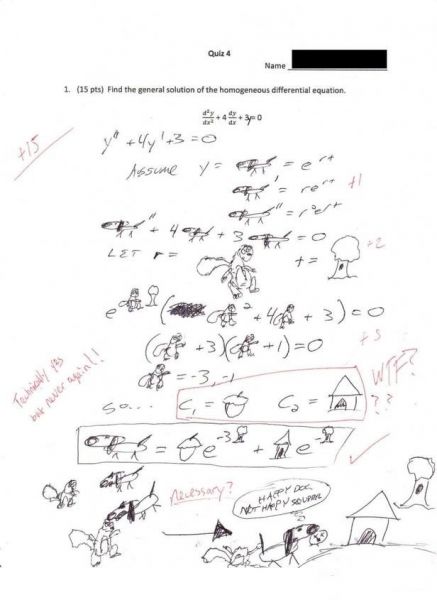 Quiz 4
Name
1. (15 pts) Find the general solution of the homogeneous differential equation.
d²y/dx² + 4 dy/dx + 3y = 0
+15
y" + 4y' + 3 = 0
Assume y = = e^rt
' = re^rt
+1
" = r²e^rt
" + 4 ' + 3 = 0
LET r = t =
+2
e ( ² + 4 + 3) = 0
( + 3)( + 1) = 0
+3
= -3, -1
WTF?
??
Technically yes
but never again!!
so... C₁ = C₂ =
= e^-3 + e^-
Necessary?
HAPPY DOG
NOT HAPPY SQUIRREL